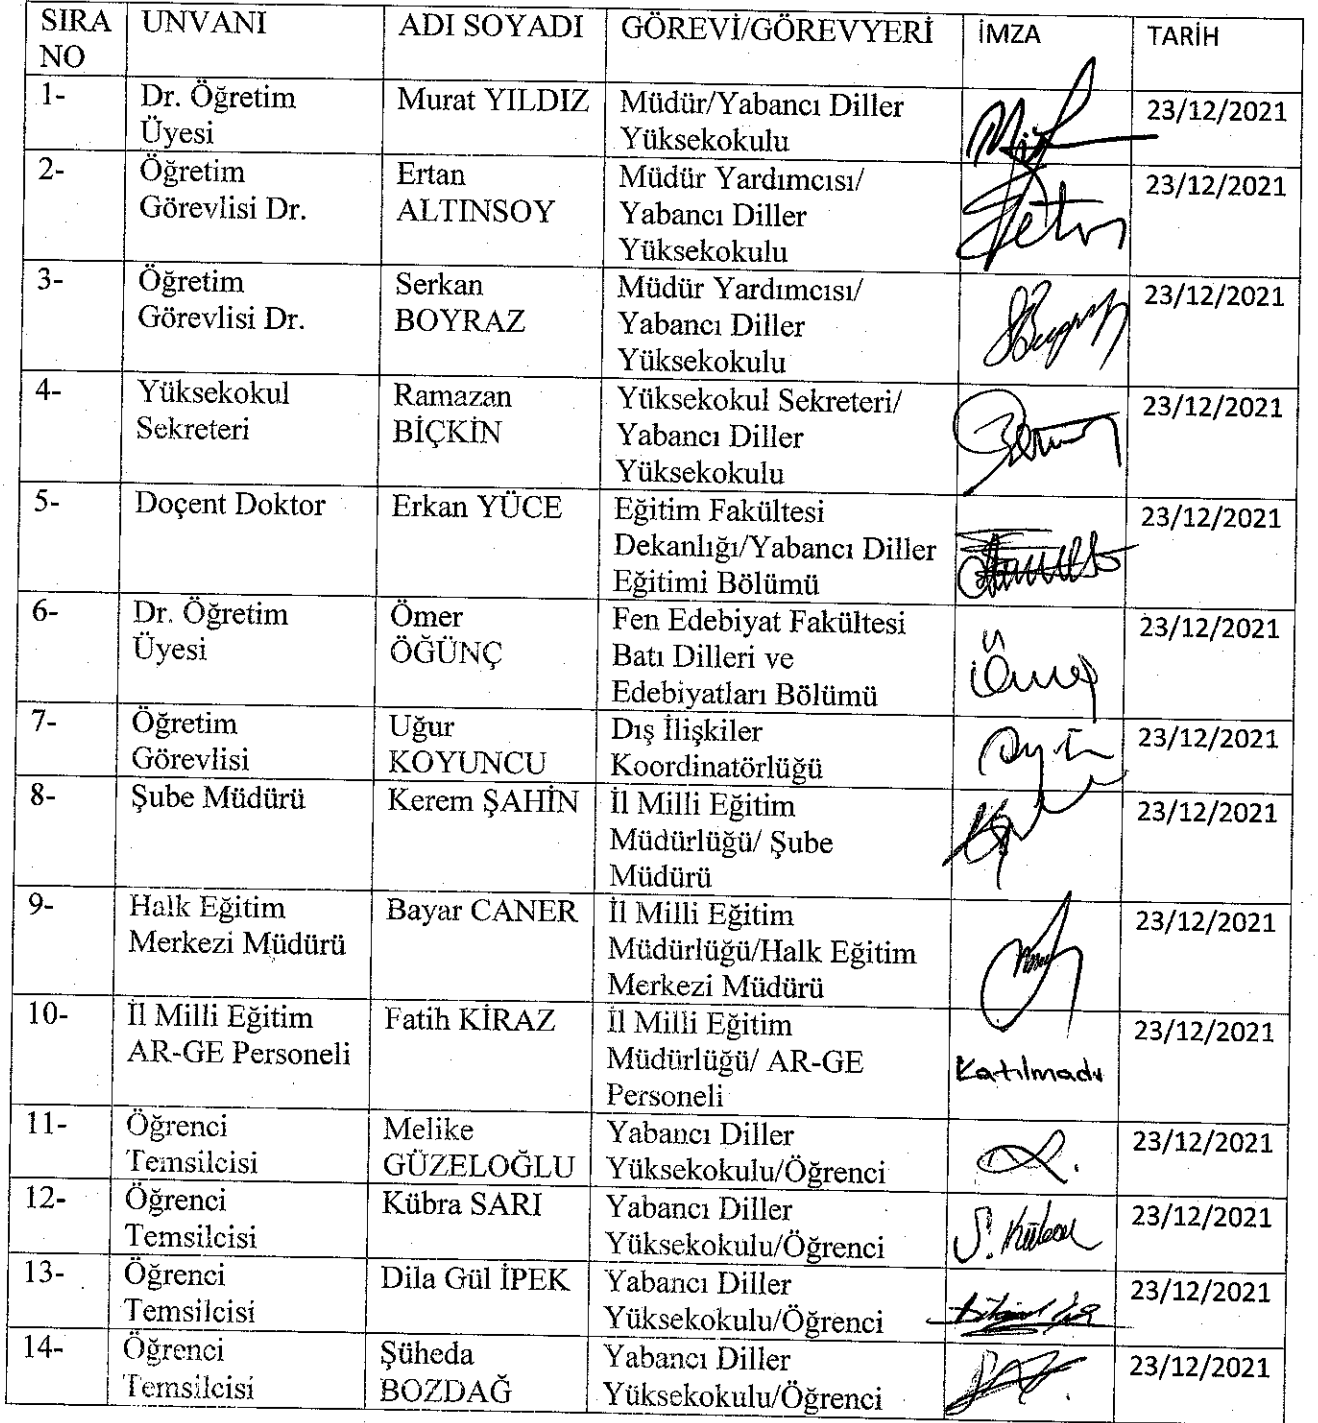 SIRA NO UNVANI ADI SOYADI GÖREVİ/GÖREVYERİ İMZA TARİH
1- Dr. Öğretim Üyesi Murat YILDIZ Müdür/Yabancı Diller Yüksekokulu 23/12/2021
2- Öğretim Görevlisi Dr. Ertan ALTINSOY Müdür Yardımcısı/ Yabancı Diller Yüksekokulu 23/12/2021
3- Öğretim Görevlisi Dr. Serkan BOYRAZ Müdür Yardımcısı/ Yabancı Diller Yüksekokulu 23/12/2021
4- Yüksekokul Sekreteri Ramazan BİÇKİN Yüksekokul Sekreteri/ Yabancı Diller Yüksekokulu 23/12/2021
5- Doçent Doktor Erkan YÜCE Eğitim Fakültesi Dekanlığı/Yabancı Diller Eğitimi Bölümü 23/12/2021
6- Dr. Öğretim Üyesi Ömer ÖĞÜNÇ Fen Edebiyat Fakültesi Batı Dilleri ve Edebiyatları Bölümü 23/12/2021
7- Öğretim Görevlisi Uğur KOYUNCU Dış İlişkiler Koordinatörlüğü 23/12/2021
8- Şube Müdürü Kerem ŞAHİN İl Milli Eğitim Müdürlüğü/ Şube Müdürü 23/12/2021
9- Halk Eğitim Merkezi Müdürü Bayar CANER İl Milli Eğitim Müdürlüğü/Halk Eğitim Merkezi Müdürü 23/12/2021
10- İl Milli Eğitim AR-GE Personeli Fatih KİRAZ İl Milli Eğitim Müdürlüğü/ AR-GE Personeli Katılmadı 23/12/2021
11- Öğrenci Temsilcisi Melike GÜZELOĞLU Yabancı Diller Yüksekokulu/Öğrenci 23/12/2021
12- Öğrenci Temsilcisi Kübra SARI Yabancı Diller Yüksekokulu/Öğrenci 23/12/2021
13- Öğrenci Temsilcisi Dila Gül İPEK Yabancı Diller Yüksekokulu/Öğrenci 23/12/2021
14- Öğrenci Temsilcisi Şüheda BOZDAĞ Yabancı Diller Yüksekokulu/Öğrenci 23/12/2021